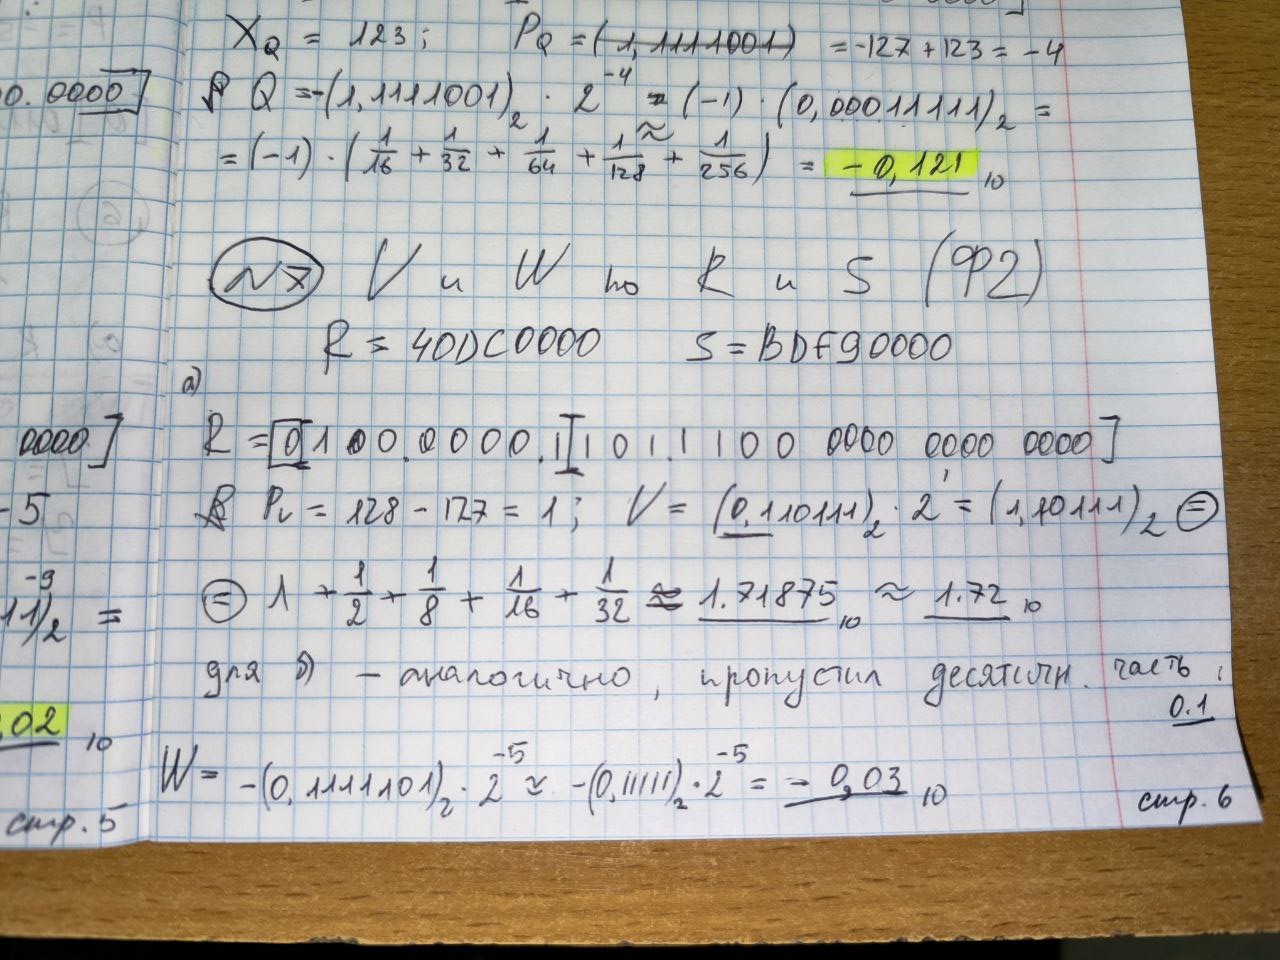 X_Q = 123; P_Q = (1,1111001) = -127 + 123 = -4
00.0000]
Q = -(1,1111001)₂ · 2⁻⁴ ≈ (-1) · (0,00011111)₂ =
= (-1) · (1/16 + 1/32 + 1/64 + 1/128 + 1/256) = -0,121 ₁₀
N7 V и W по R и S (Ф2)
R = 40DC0000 S = BDF90000
а)
0000.]
R = [0100.0000.1][101.1100 0000 0000 0000]
-5
P_V = 128 - 127 = 1; V = (0,110111)₂ · 2¹ = (1,10111)₂ =
-9
11)₂ =
= 1 + 1/2 + 1/8 + 1/16 + 1/32 ≈ 1.71875 ₁₀ ≈ 1.72 ₁₀
для б) - аналогично, пропустил десятичн. часть,
0.1
,02 ₁₀
W = -(0,1111101)₂ · 2⁻⁵ ≈ -(0,11111)₂ · 2⁻⁵ = -0,03 ₁₀
стр. 5
стр. 6